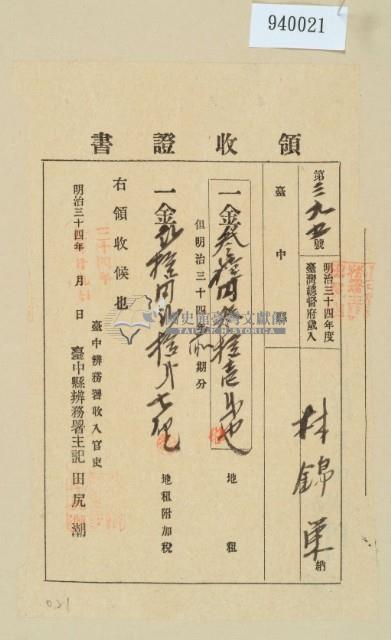 940021
領收證書
第三九五號
明治三十四年度
臺灣總督府歲入
臺中縣
林錦 納
一金叁拾 圓 拾壱 也 地租
但明治三十四年 期分
一金 拾圓 拾 七 地租附加稅
右領收候也
明治三十四年 月 日
臺中辨務署收入官吏
臺中縣辨務署主記 田尻潮
國史館臺灣文獻館
TAIWAN HISTORICA
031